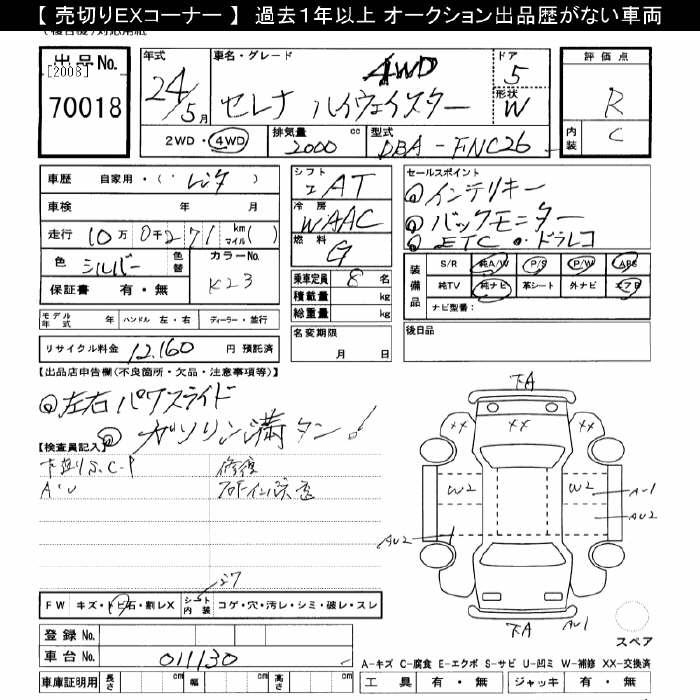 【 売切りEXコーナー 】 過去1年以上 オークション出品歴がない車両
出品No. [2008] 70018
年式 24/5月
車名・グレード 4WD セレナ ハイウェイスター
ドア 5
形状 W
2WD・4WD
排気量 2000 cc
型式 DBA-FNC26
評価点 R
内装 C
車歴 自家用・( レンタ )
車検 年 月
走行 10万0千271 km マイル( )
色 シルバー 色替
カラーNo. K23
保証書 有・無
シフト AT
冷房 WAAC
燃料 G
乗車定員 8名
積載量 kg
総重量 kg
セールスポイント
インテリキー
バックモニター
ETC・ドラレコ
装備品
S/R 純A/W P/S P/W ABS
純TV 純ナビ 革シート 外ナビ エアB
ナビ型番:
モデル年式 年 ハンドル 左・右 ディーラー・並行
リサイクル料金 12,160 円 預託済
名変期限 月 日
後日品
【出品店申告欄(不良箇所・欠品・注意事項等)】
左右パワスライド
ガソリン満タン!
【検査員記入】
下廻りS.C.P 修復
A・U
下A
XX XX XX
W2 W2 A-1
AU2 AU2
下A AU-1
FW キズ・トビ石・割レX シート内装 コゲ・穴・汚レ・シミ・破レ・スレ
スペア
登録No.
車台No. 011130
車庫証明用 長さ cm 幅 cm 高さ cm
A-キズ C-腐食 E-エクボ S-サビ U-凹ミ W-補修 XX-交換済
工具 有・無 ジャッキ 有・無